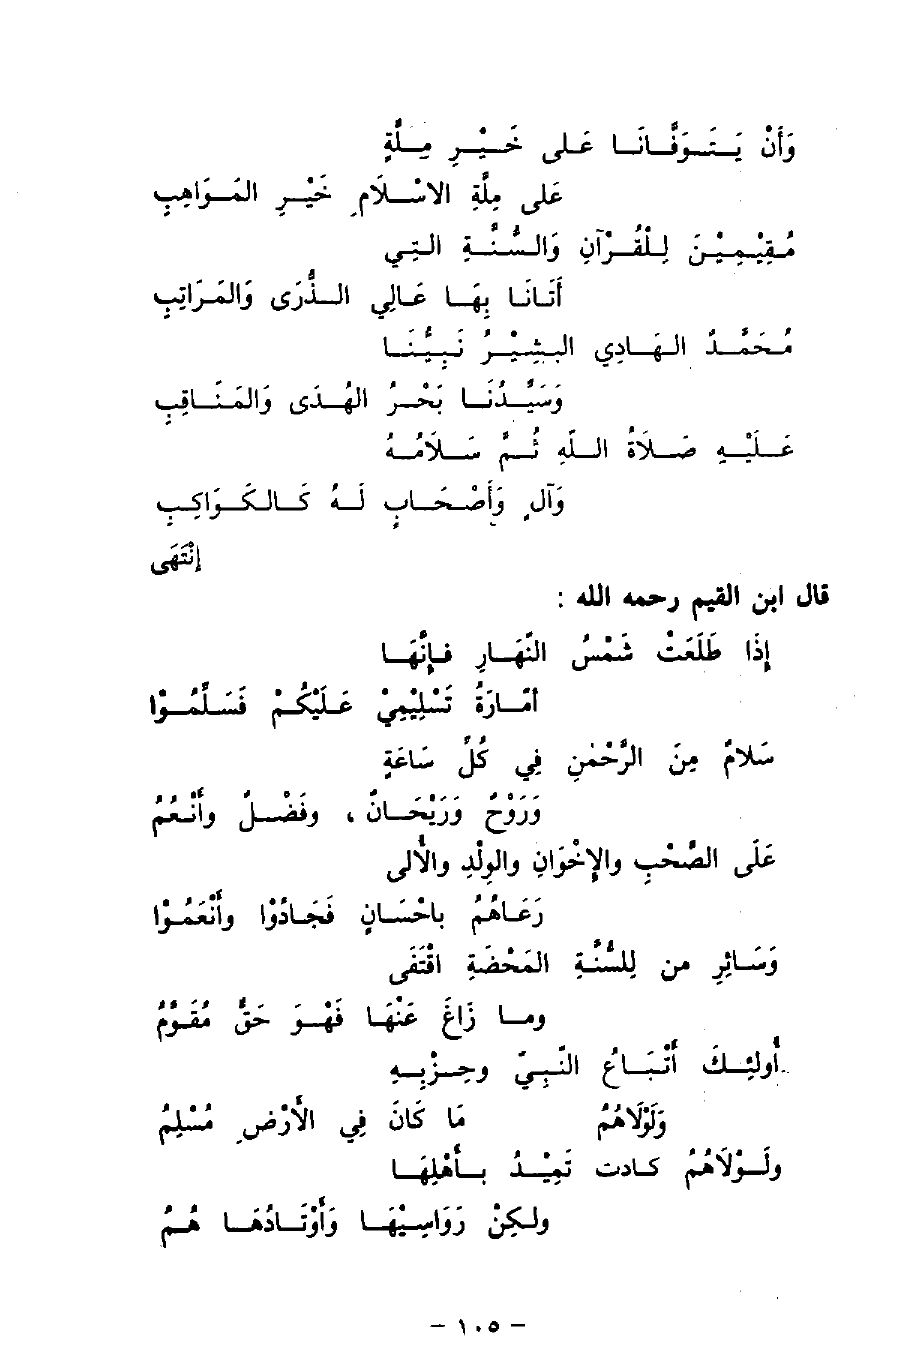 وَأَنْ يَتَوَفَّانَا عَلى خَيْرِ مِلَّةٍ
عَلى مِلَّةِ الاسْلَامِ خَيْرِ المَوَاهِبِ
مُقِيْمِيْنَ لِلْقُرْآنِ وَالسُّنَّةِ التِي
أَتَانَا بِهَا عَالِي الذُّرَى وَالمَرَاتِبِ
مُحَمَّدُ الهَادِي البشِيْرُ نَبِيُّنَا
وَسَيِّدُنَا بَحْرُ الهُدَى وَالمَنَاقِبِ
عَلَيْهِ صَلَاةُ اللَّهِ ثُمَّ سَلَامُهُ
وَآلٍ وَأَصْحَابٍ لَهُ كَالكَوَاكِبِ
إنْتَهَى
قال ابن القيم رحمه الله :
إِذَا طَلَعَتْ شَمْسُ النَّهَارِ فإِنَّهَا
أمَارَةُ تَسْلِيْمِيْ عَلَيْكُمْ فَسَلِّمُوْا
سَلامٌ مِنَ الرَّحْمٰنِ فِي كُلِّ سَاعَةٍ
وَرَوْحٌ وَرَيْحَانٌ ، وفَضْلٌ وأَنْعُمُ
عَلَى الصَّحْبِ والإِخْوَانِ والوِلْدِ والأُلى
رَعَاهُمُ باحْسَانٍ فَجَادُوْا وأَنْعَمُوْا
وَسَائِرِ من لِلسُّنَّةِ المَحْضَةِ اقْتَفَى
وما زَاغَ عَنْهَا فَهْوَ حَقٌّ مُقَوَّمُ
أُولئِكَ أَتْبَاعُ النَّبِيّ وحِزْبِهِ
وَلَوْلَاهُمُ مَا كَانَ فِي الأَرْضِ مُسْلِمُ
ولَوْلَاهُمُ كادت تَمِيْدُ بأَهْلِهَا
ولكِنْ رَوَاسِيْهَا وَأَوْتَادُهَا هُمُ
– ١٠٥ –